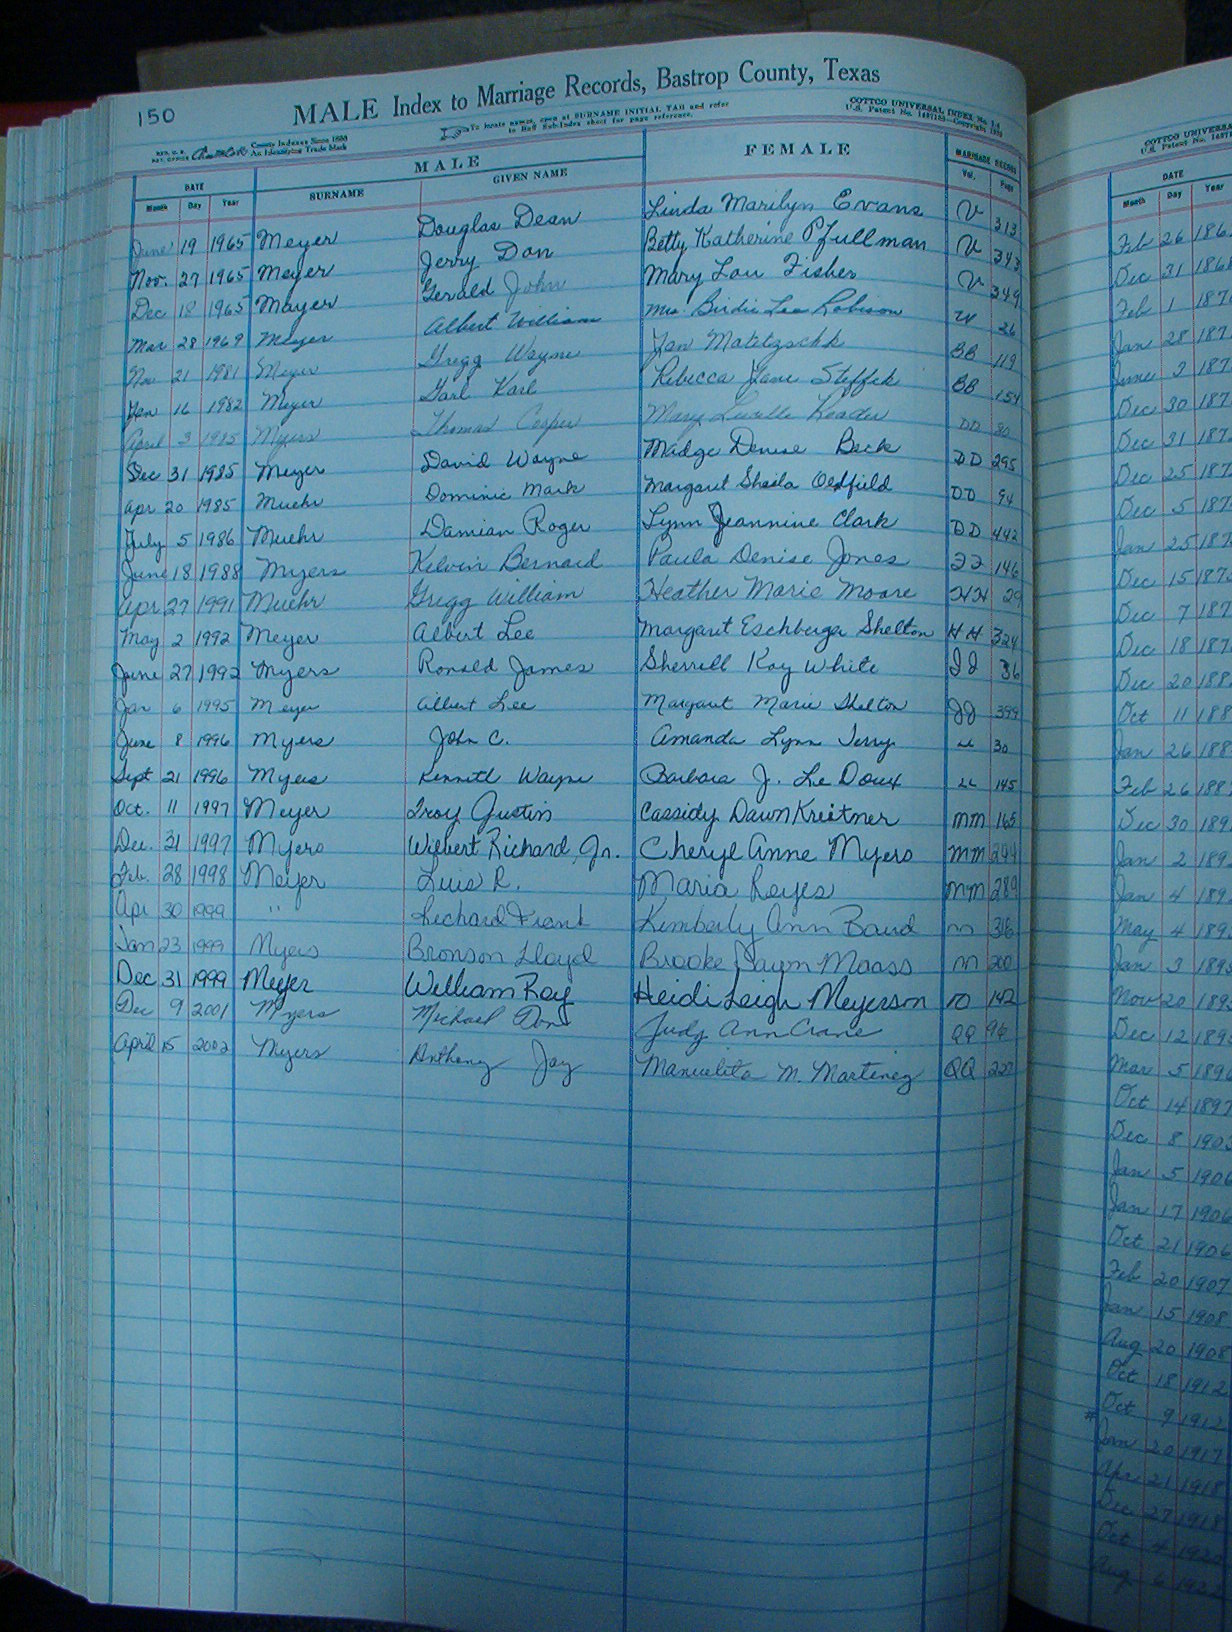 150
MALE Index to Marriage Records, Bastrop County, Texas
To locate names, open at SURNAME INITIAL TAB and refer
to Half Sub-Index sheet for page reference.
COTTCO UNIVERSAL INDEX No.
U.S. Patent No.
County Indexes Since 1888
An Identifying Trade Mark
DATE MALE FEMALE MARRIAGE RECORD
Month Day Year SURNAME GIVEN NAME Vol. Page
June 19 1965 Meyer Douglas Dean Linda Marilyn Evans V 313
Nov. 27 1965 Meyer Jerry Don Betty Katherine Pfullman V 343
Dec 18 1965 Mayer Gerald John Mary Lou Fisher V 349
Mar 28 1969 Meyer Albert William Mrs. Birdie Lee Robison W 26
Nov 21 1981 Meyer Gregg Wayne Jan Matetzschk BB 119
Jan 16 1982 Meyer Carl Karl Rebecca Jane Steffek BB 154
April 3 1985 Myers Thomas Casper Mary Lucille Reader DD 80
Dec 31 1985 Meyer David Wayne Madge Denise Beck DD 295
Apr 20 1985 Muehr Dominic Mark Margaret Sheila Oldfield DD 94
July 5 1986 Muehr Damian Roger Lynn Jeannine Clark DD 442
June 18 1988 Myers Kelvin Bernard Paula Denise Jones FF 146
Apr 27 1991 Muehr Gregg William Heather Marie Moore HH 29
May 2 1992 Meyer Albert Lee Margaret Eschberger Shelton HH 324
June 27 1992 Myers Ronald James Sherrell Kay White JJ 36
Jan 6 1995 Meyer Albert Lee Margaret Marie Shelton JJ 399
June 8 1996 Myers John C. Amanda Lynn Terry LL 30
Sept 21 1996 Myers Kenneth Wayne Barbara J. Le Doux LL 145
Oct. 11 1997 Meyer Troy Justin Cassidy Dawn Kreitner MM 165
Dec. 31 1997 Myers Wilbert Richard, Jr. Cheryl Anne Myers MM 244
Feb. 28 1998 Meyer Luis R. Maria Reyes MM 289
Apr 30 1999 " Richard Frank Kimberly Ann Baud 316
Jan 23 1999 Myers Bronson Lloyd Brooke Daym Maass 200
Dec 31 1999 Meyer William Ray Heidi Leigh Meyerson 142
Dec 9 2001 Myers Michael Don Judy Ann Crane QQ 96
April 15 2002 Myers Anthony Jay Manuelita M. Martinez QQ 227
COTTCO UNIVERSAL
U.S. Patent No.
DATE
Month Day Year
Feb 26 186
Dec 31 1868
Feb 1 187
Jan 28 187
June 2 187
Dec 30 187
Dec 31 187
Dec 25 187
Dec 5 187
Jan 25 187
Dec 15 187
Dec 7 187
Dec 18 187
Dec 20 188
Oct 11 188
Jan 26 188
Feb 26 188
Dec 30 189
Jan 2 189
Jan 4 189
May 4 189
Jan 3 189
Nov 20 189
Dec 12 189
Mar 5 189
Oct 14 1897
Dec 8 190
Jan 5 1906
Jan 17 1906
Oct 21 1906
Feb 20 1907
Jan 15 1908
Aug 20 1908
Oct 18 1912
Oct 9 1912
Jan 20 1917
Apr 21 1918
Dec 27 1918
Oct 4 192
Aug 6 192